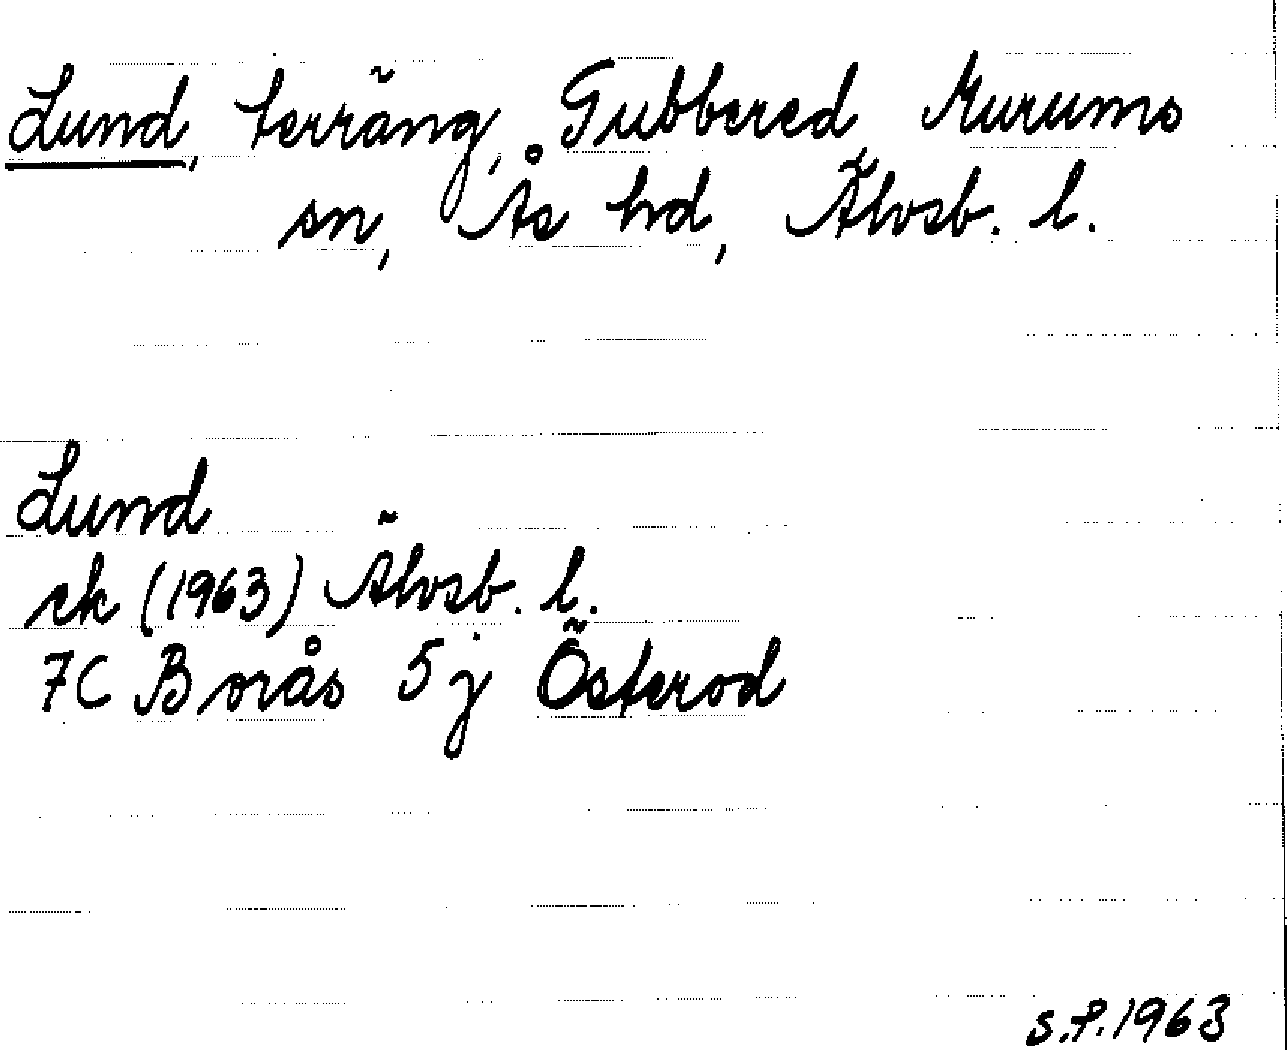 Lund, terräng, Gubbered Murums
sn, Ås hd, Älvsb. l.
Lund
ek (1963) Älvsb. l.
7C Borås 5j Österod
S.P. 1963